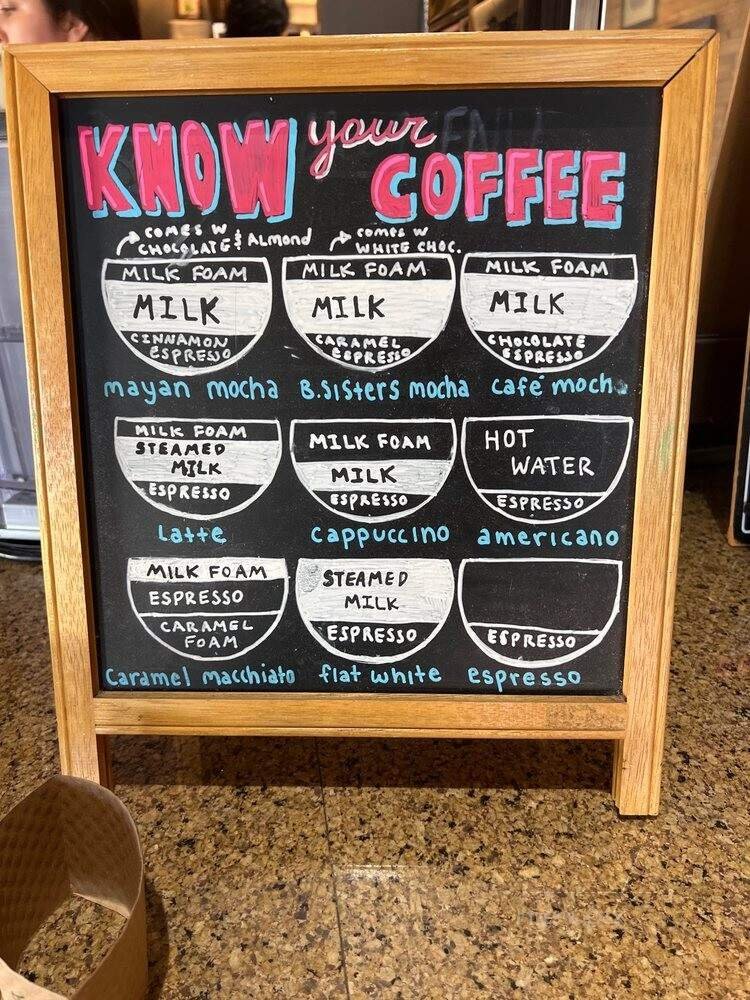 KNOW your COFFEE
COMES W
CHOCOLATE & ALMOND
COMES W
WHITE CHOC.
MILK FOAM
MILK
CINNAMON
ESPRESSO
mayan mocha
MILK FOAM
MILK
CARAMEL
ESPRESSO
B.SISTERS mocha
MILK FOAM
MILK
CHOCOLATE
ESPRESSO
café moch
MILK FOAM
STEAMED
MILK
ESPRESSO
Latte
MILK FOAM
MILK
ESPRESSO
cappuccino
HOT
WATER
ESPRESSO
americano
MILK FOAM
ESPRESSO
CARAMEL
FOAM
Caramel macchiato
STEAMED
MILK
ESPRESSO
flat white
ESPRESSO
espresso